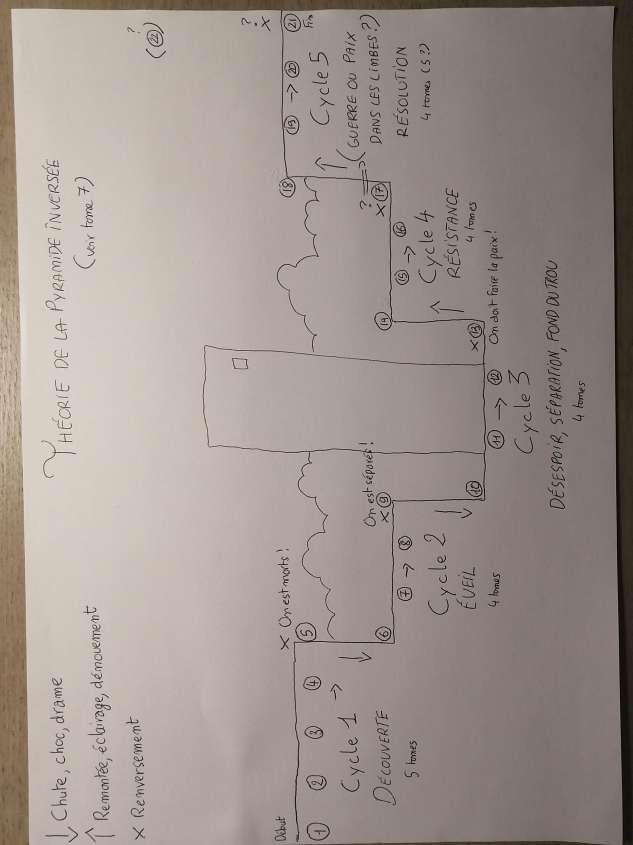 THÉORIE DE LA PYRAMIDE INVERSÉE
(voir tome 7)
↓ Chute, choc, drame
↑ Remontée, éclairage, dénouement
× Renversement
Début
1 2 3 4 →
Cycle 1
DÉCOUVERTE
5 tomes
× On est morts !
5
↓
6
7 → 8
Cycle 2
ÉVEIL
4 tomes
On est séparés !
× 9
↓
10
11 → 12
Cycle 3
DÉSESPOIR, SÉPARATION, FOND DU TROU
4 tomes
× 13
On doit faire la paix !
↑
14
15 → 16
Cycle 4
RÉSISTANCE
4 tomes
? × 17
⇒ (GUERRE OU PAIX
DANS LES LIMBES ?)
↑
18
19 → 20
Cycle 5
RÉSOLUTION
4 tomes (5 ?)
? ×
21
Fin
?
(22)